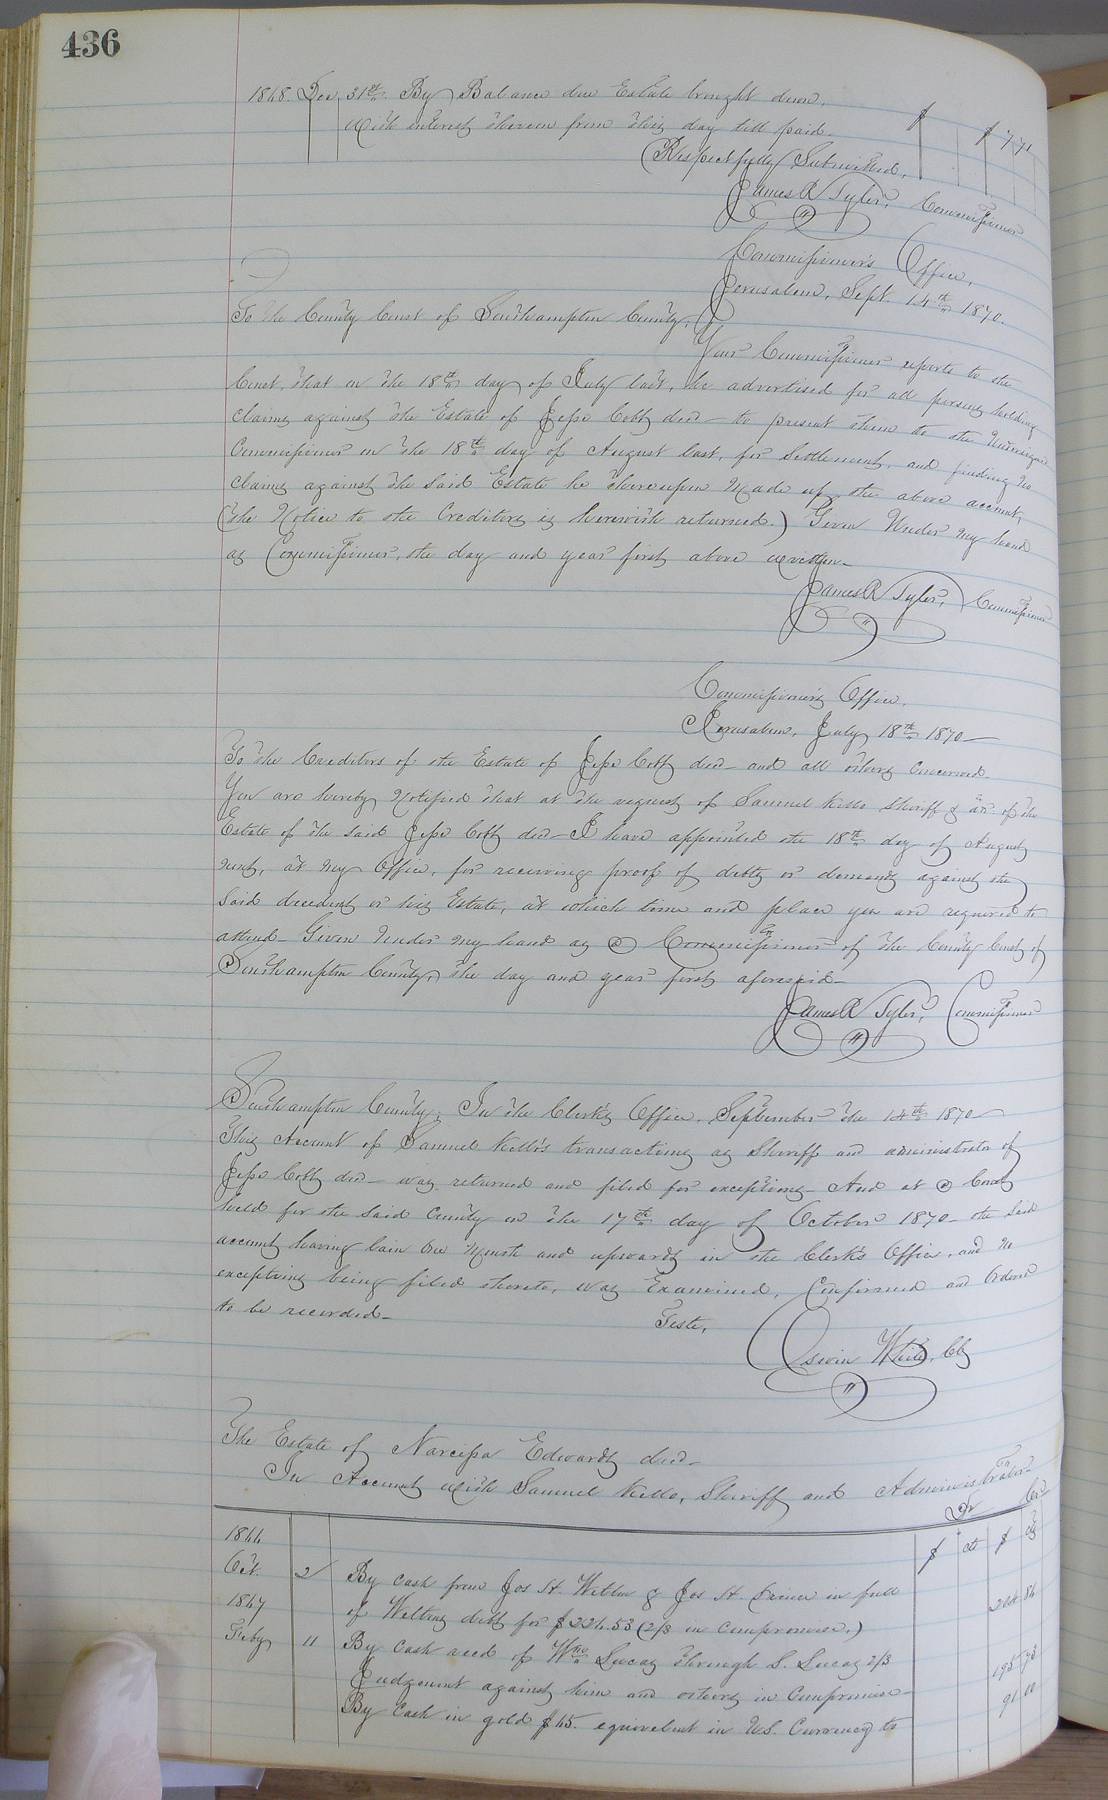 436
1868. Dec. 31st. By Balance due Estate brought down,
with interest thereon from this day till paid. $ $ 7 71
Respectfully Submitted,
James R Tyler, Commissioner
Commissioner's Office,
Jerusalem, Sept. 14th 1870.
To the County Court of Southampton County,
Your Commissioner reports to the
Court, that on the 18th day of July last, he advertised for all persons holding
claims against the Estate of Jesse Cobb decd— to present them to the
Commissioner on the 18th day of August last, for Settlement, and finding no
claims against the said Estate he thereupon Made up the above account,
(the Notice to the Creditors is herewith returned.) Given Under My hand
as Commissioner, the day and year first above written—
James R Tyler, Commissioner
Commissioner's Office,
Jerusalem, July 18th 1870—
To the Creditors of the Estate of Jesse Cobb decd— and all others Concerned
You are hereby Notified that at the request of Samuel Kello Sheriff & adr. of the
Estate of the said Jesse Cobb decd— I have appointed the 18th day of August
next, at my Office, for receiving proof of debts or demands against the
Said decedent or his Estate, at which time and place you are required to
attend— Given Under My hand as a Commissioner of the County Court of
Southampton County, the day and year first aforesaid—
James R Tyler, Commissioner
Southampton County; In the Clerk's Office, September the 14th 1870—
This Account of Samuel Kello's transactions as Sheriff and administrator of
Jesse Cobb decd— was returned and filed for exceptions— And at a Court
held for the said County on the 17th day of October 1870— the said
account having lain One Month and upwards in the Clerk's Office, and No
exceptions being filed thereto, was Examined, Confirmed and Ordered
to be recorded—
Teste,
Edwin White, Clk
The Estate of Narcissa Edwards decd—
In Account with Samuel Kello, Sheriff and Administrator—
Dr Cr
1866 $ cts $ cts
Oct. 2 By cash from Jos H. & Jos H. Prince in full
1867 of debt for $ 224.53 (2/3 in compromise.) 204 84
Feby 11 By Cash recd of Wm Lucas through S. Lucas 2/3
Judgment against him and others in Compromise— 195 73
By Cash in gold $ 45. equivalent in U.S. Currency to 91 00